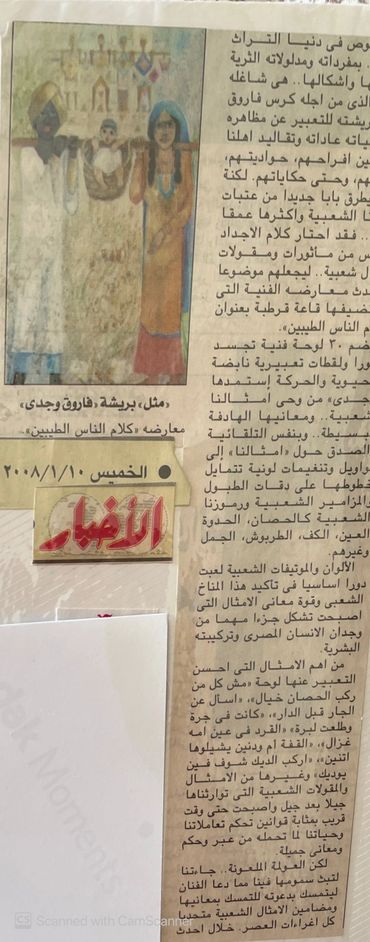 وص فى دنيا التراث
. بمفرداته ومدلولاته الثرية
ها واشكالها.. هى شاغله
لذى من اجله كرس فاروق
ريشته للتعبير عن مظاهره
ياته عاداته وتقاليد اهلنا
ين افراحهم، حواديتهم،
هم، وحتى حكاياتهم. لكنة
يطرق بابا جديدا من عتبات
نا الشعبية واكثرها عمقا
.. فقد احتار كلام الأجداد
س من مأثورات ومقولات
ل شعبية.. ليجعلهم موضوعا
دث معارضه الفنية التى
ضيفها قاعة قرطبة بعنوان
م الناس الطيبين».
ضم ٣٠ لوحة فنية تجسد
ورا ولقطات تعبيرية نابضة
حيوية والحركة إستمدها
جدى» من وحى أمثالنا
شعبية.. ومعانيها الهادفة
بسيطة.. وبنفس التلقائية
الصدق حول «امثالنا» إلى
واويل وتنغيمات لونية تتمايل
خطوطها على دقات الطبول
المزامير الشعبية ورموزنا
الشعبية كالحصان، الحدوة
العين، الكف، الطربوش، الجمل
وغيرهم.
الألوان والموتيفات الشعبية لعبت
دورا اساسيا فى تأكيد هذا المناخ
الشعبى وقوة معانى الامثال التى
اصبحت تشكل جزءا مهما من
وجدان الانسان المصرى وتركيبته
البشرية.
من اهم الامثال التى احسن
التعبير عنها لوحة «مش كل من
ركب الحصان خيال»، «اسأل عن
الجار قبل الدار»، «كانت فى جرة
وطلعت لبرة» «القرد فى عين امه
غزال»، «القفة ام ودنين يشيلوها
اتنين»، «اركب الديك شوف فين
يوديك» وغيرها من الامثال
والمقولات الشعبية التى توارثناها
جيلا بعد جيل واصبحت حتى وقت
قريب بمثابة قوانين تحكم تعاملاتنا
وحياتنا لما تحمله من عبر وحكم
ومعانى جميلة.
لكن العولمة الملعونة.. جاءتنا
لتبث سمومها فينا مما دعا الفنان
ليتمسك بدعوته للتمسك بمعانيها
ومضامين الامثال الشعبية متحديا
كل اغراءات العصر. خلال احدث
«مثل» بريشة «فاروق وجدى»
معارضه «كلام الناس الطيبين».
● الخميس ٢٠٠٨/١/١٠
الأخبار
CS Scanned with CamScanner